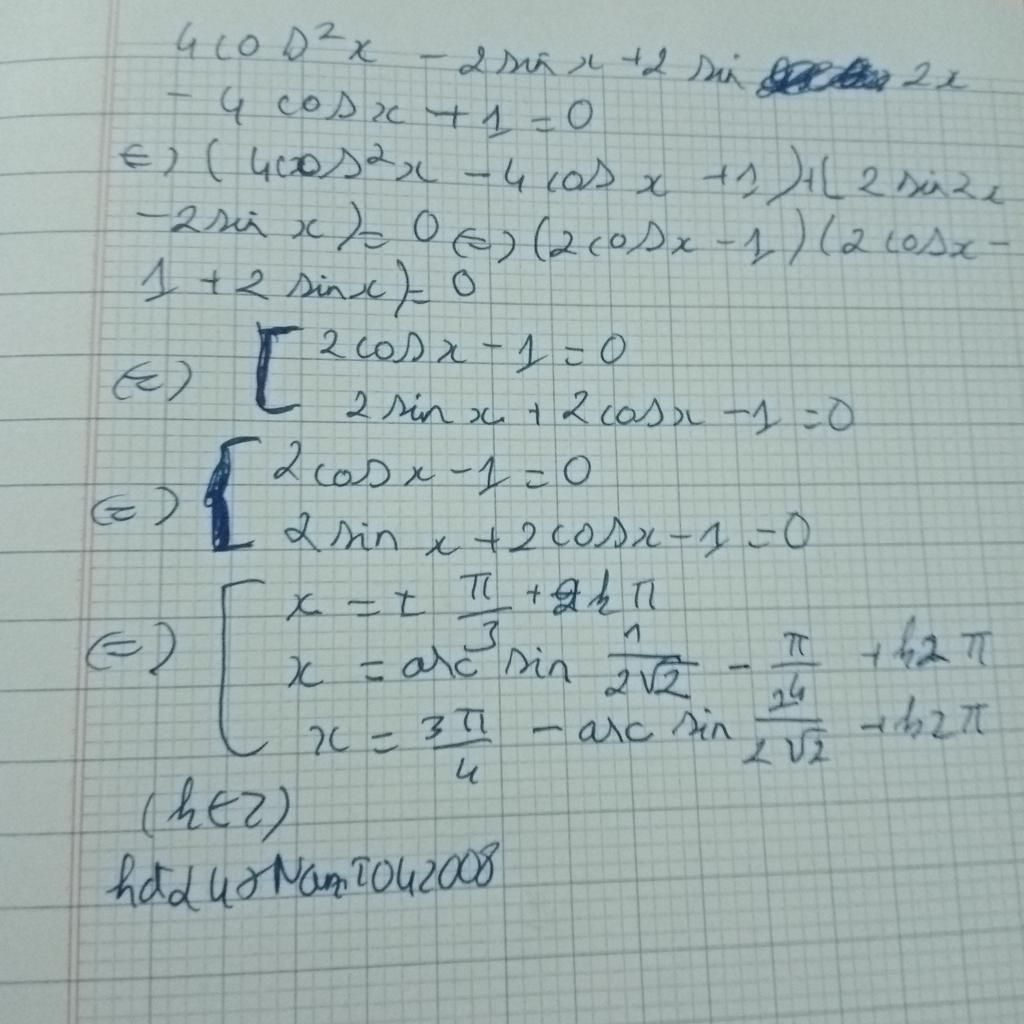 4cos²x - 2sin x + 2 sin 2x
- 4 cosx + 1 = 0
⇔ (4cos²x - 4 cos x + 1) + (2 sin2x
- 2sin x) = 0 ⇔ (2cosx - 1)(2 cosx -
1 + 2 sinx) = 0
⇔ [ 2cosx - 1 = 0
2 sin x + 2cosx - 1 = 0
⇔ [ 2cosx - 1 = 0
2 sin x + 2cosx - 1 = 0
⇔ [ x = ± π/3 + 2kπ
x = arc sin 1/(2√2) - π/4 + k2π
x = 3π/4 - arc sin 1/(2√2) + k2π
(k ∈ Z)